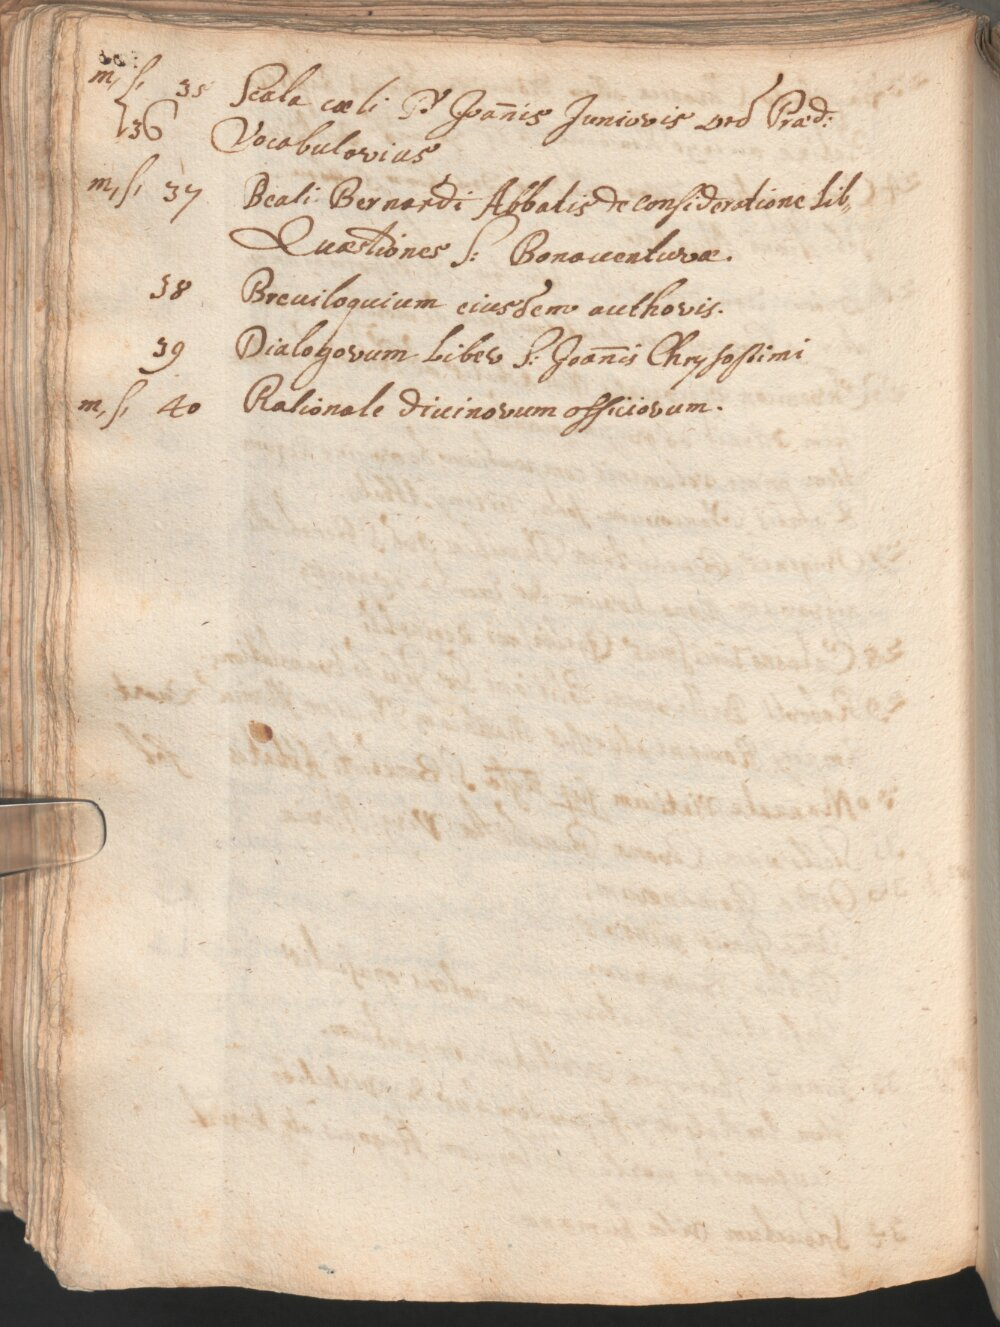 m, s, 35 Scala cœli P. Joan̄is Junioris ord Præd:
36 Vocabularius
m, s, 37 Beati Bernardi Abbatis de consideratione Lib,
Quæstiones S: Bonauenturæ.
38 Breuiloquium eiusdem authoris.
39 Dialogorum Liber S: Joan̄is Chrysostimi
m, s, 40 Rationale diuinorum officiorum.